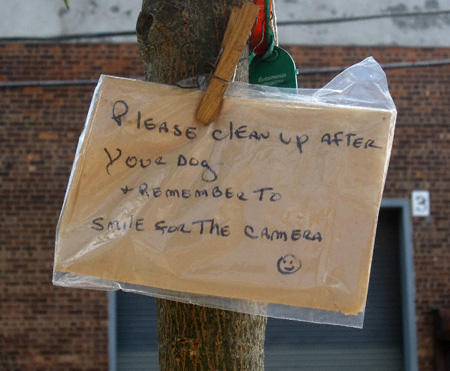 PLEASE CLEAN UP AFTER
YOUR DOG
+ REMEMBER TO
SMILE FOR THE CAMERA
3